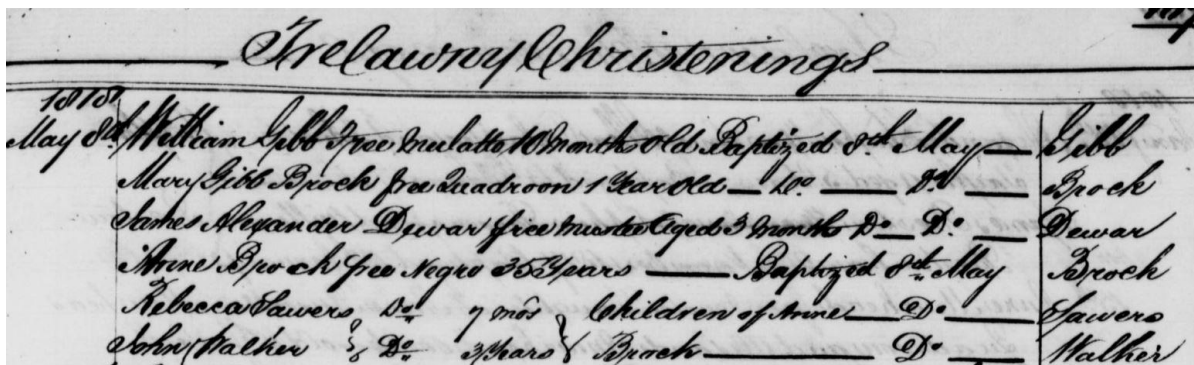 Trelawny Christenings
1818
May 8th William Gibb Free Mulatto 10 Months Old Baptized 8th May Gibb
Mary Gibb Brock free Quadroon 1 Year Old Do Do Brock
James Alexander Dewar free mustee Aged 3 months Do Do Dewar
Anne Brock free Negro 35 Years Baptized 8th May Brock
Rebecca Sawers Do 7 mos Children of Anne Do Sawers
John Walker Do 3 Years Brock Do Walker